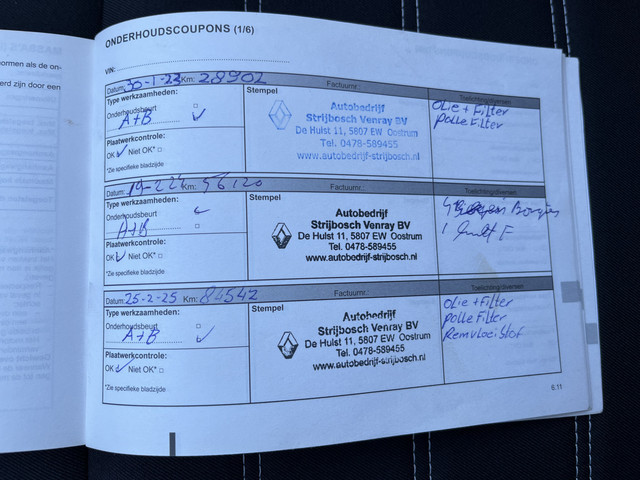 ormen als de on-
erd zijn door een
ONDERHOUDSCOUPONS (1/6)
VIN:
Datum: 30-1-23 Km: 28902 Factuurnr.: Toelichting/diversen
Type werkzaamheden: Stempel
Onderhoudsbeurt
A+B
Plaatwerkcontrole:
OK Niet OK*
*Zie specifieke bladzijde
Autobedrijf
Strijbosch Venray BV
De Hulst 11, 5807 EW Oostrum
Tel. 0478-589455
www.autobedrijf-strijbosch.nl
olie + Filter
polle Filter
Datum: 19-2-24 Km: 56120 Factuurnr.: Toelichting/diversen
Type werkzaamheden: Stempel
Onderhoudsbeurt
A+B
Plaatwerkcontrole:
OK Niet OK*
*Zie specifieke bladzijde
Autobedrijf
Strijbosch Venray BV
De Hulst 11, 5807 EW Oostrum
Tel. 0478-589455
www.autobedrijf-strijbosch.nl
Datum: 25-2-25 Km: 84542 Factuurnr.: Toelichting/diversen
Type werkzaamheden: Stempel
Onderhoudsbeurt
A+B
Plaatwerkcontrole:
OK Niet OK*
*Zie specifieke bladzijde
Autobedrijf
Strijbosch Venray BV
De Hulst 11, 5807 EW Oostrum
Tel. 0478-589455
www.autobedrijf-strijbosch.nl
olie + Filter
polle Filter
Remvloeistof
6.11